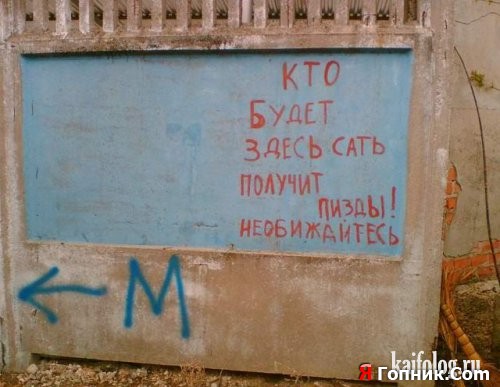 КТО
БУДЕТ
ЗДЕСЬ САТЬ
ПОЛУЧИТ
ПИЗДЫ!
НЕОБИЖАЙТЕСЬ
← М
kaifolog.ru
ЯГопник.Com